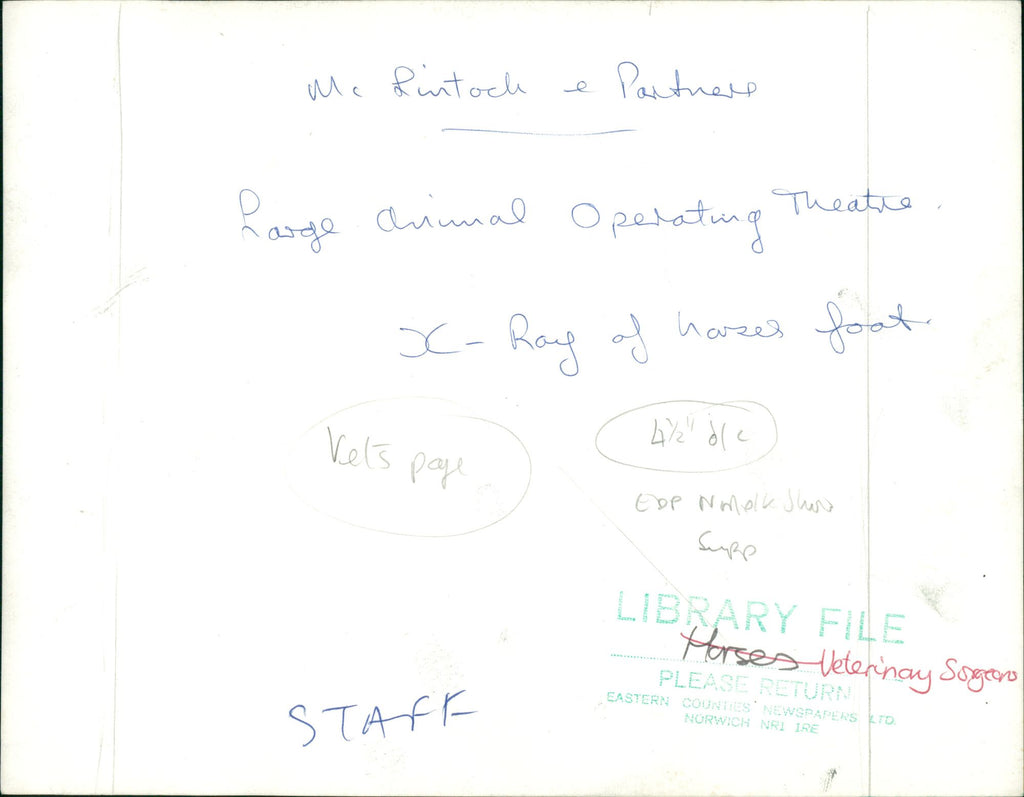 Mc Lintock & Partners
Large Animal Operating Theatre.
X-Ray of horses foot
Vet's page
4½" d/c
EDP Norfolk Show
Supp
LIBRARY FILE
Horses Veterinary Surgeons
PLEASE RETURN
EASTERN COUNTIES NEWSPAPERS LTD.
NORWICH NR1 1RE
STAFF